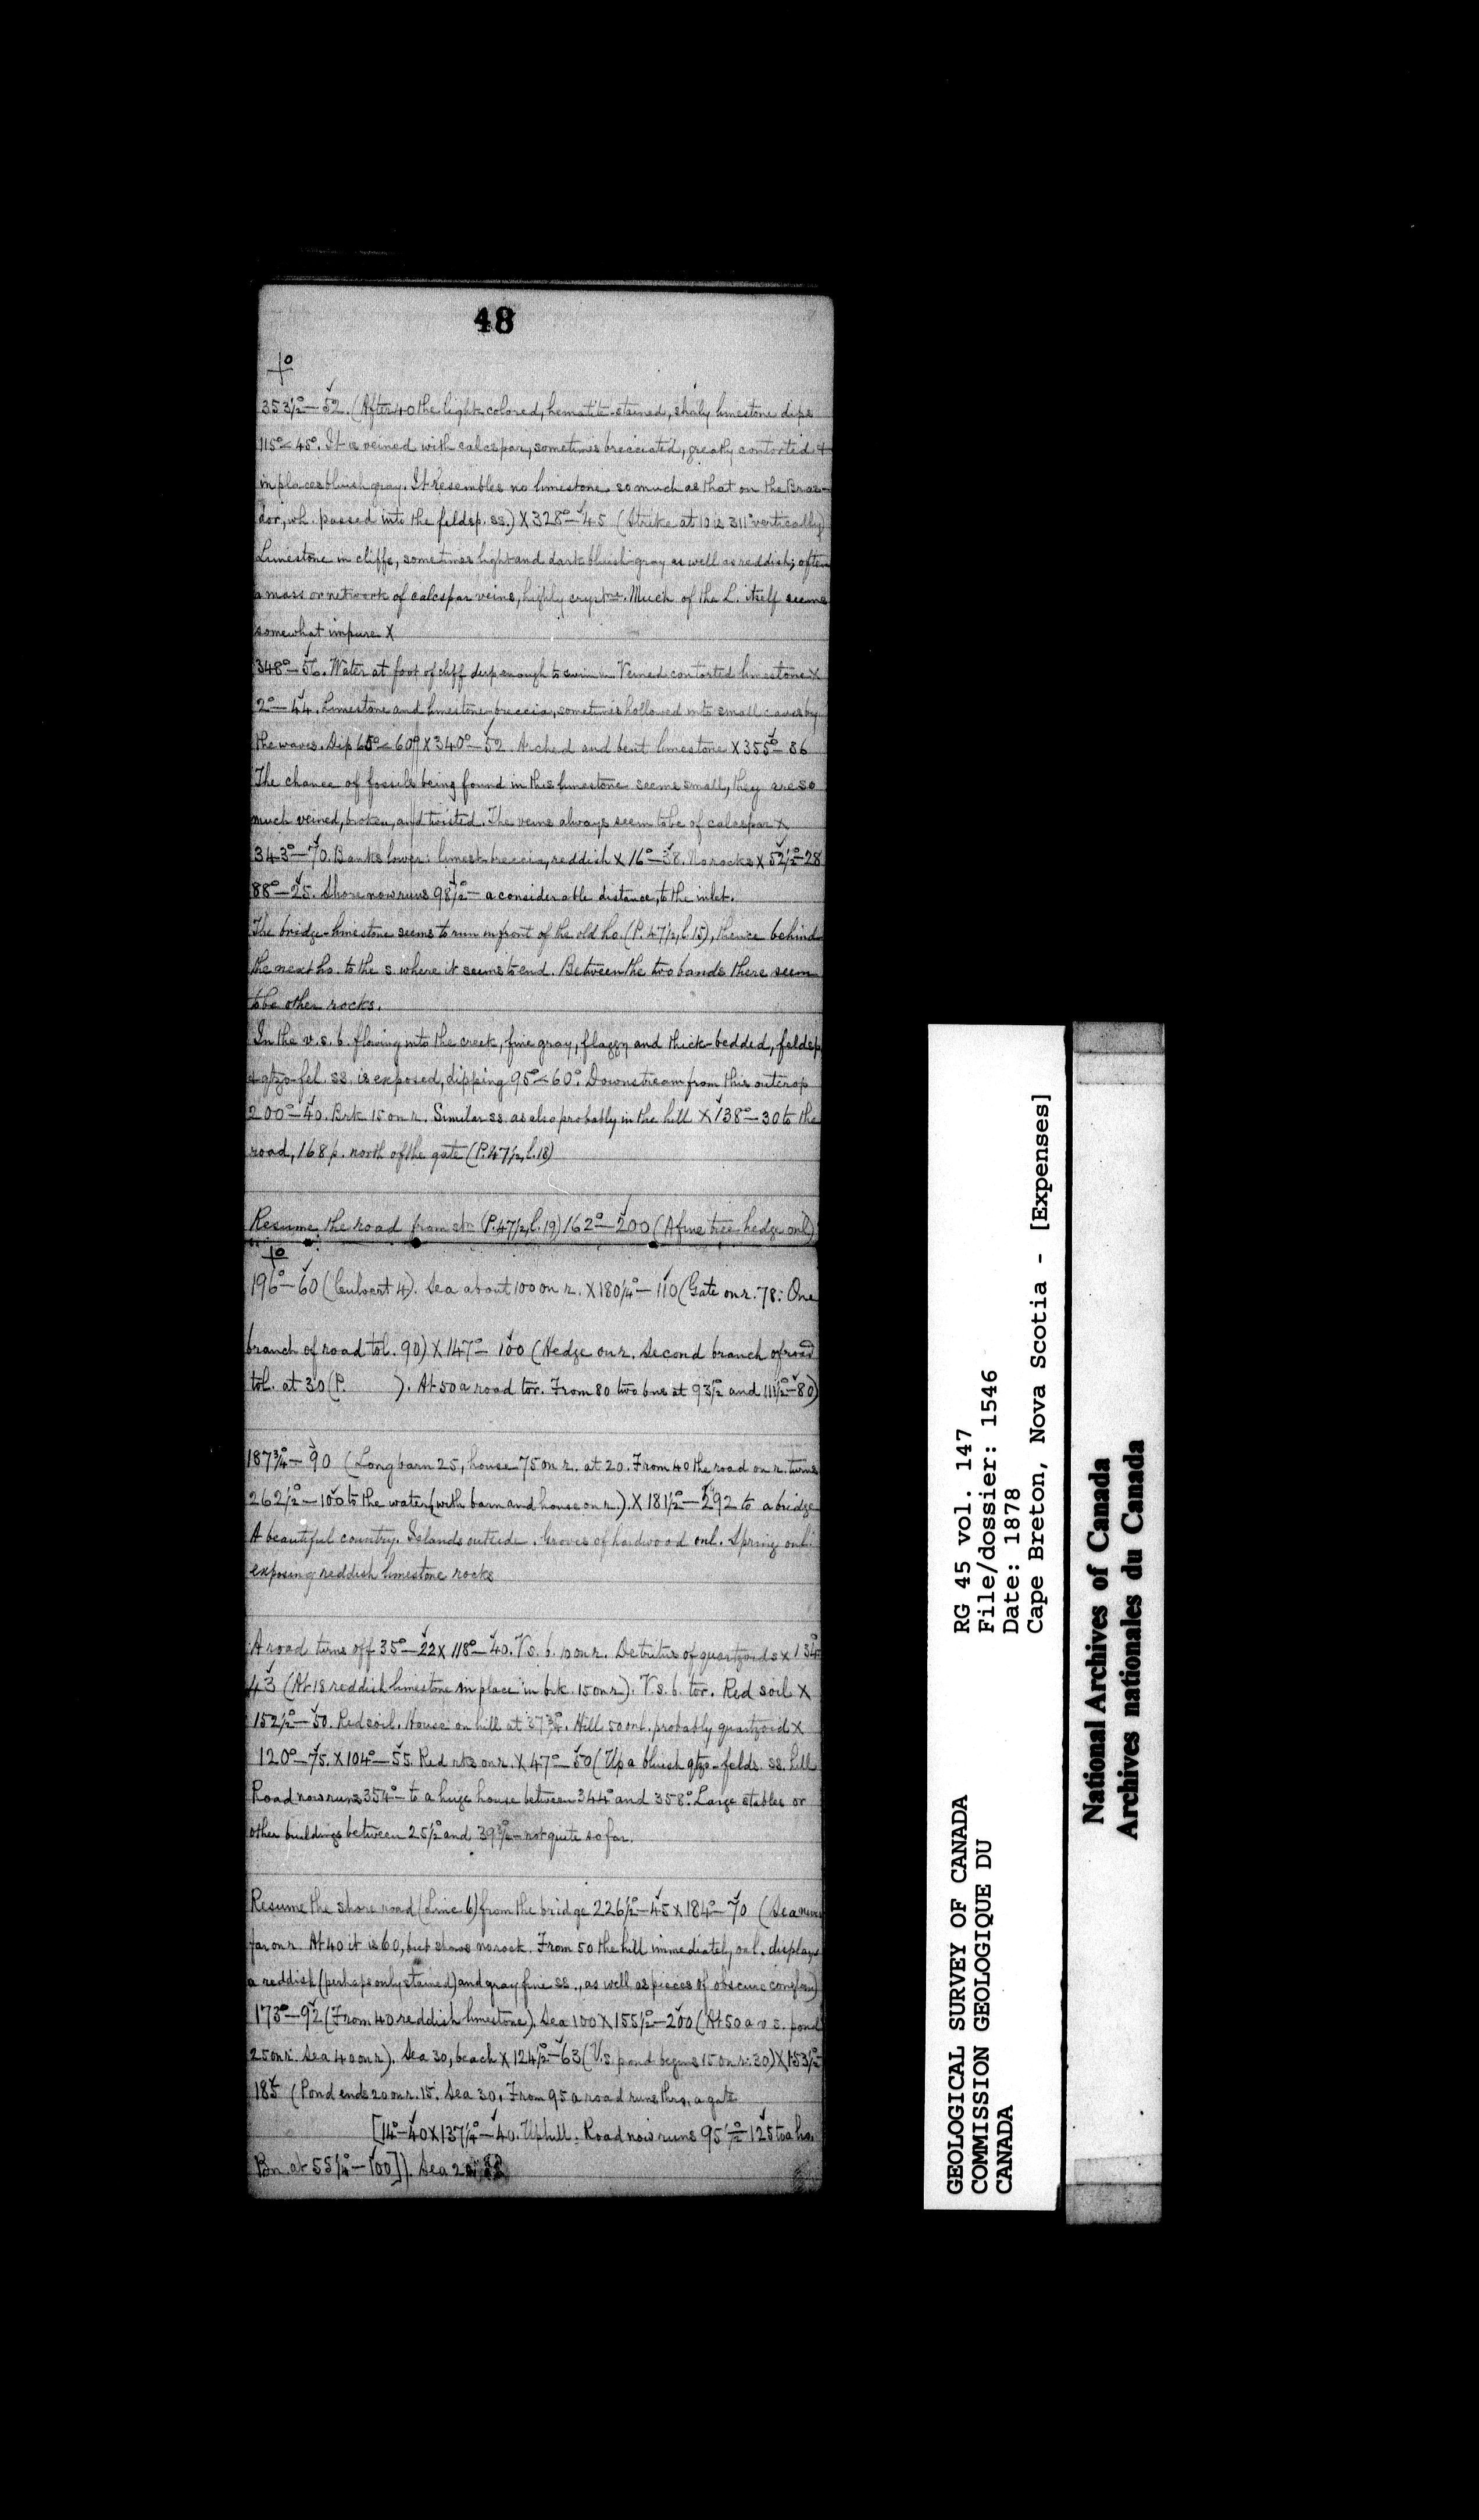 48
+°
353½°–52. (After 40 the light-colored, hematite-stained, shaly limestone dips
115°<45°. It is veined with calcspar, sometimes brecciated, greatly contorted &
in places bluish gray. It resembles no limestone so much as that on the Bras-
dor, wh. passed into the feldsp. ss.) X 328°–45 (Strike at 10 is 311° vertically)
Limestone in cliffs, sometimes light and dark bluish-gray as well as reddish; often
a mass or network of calcspar veins, highly crystne. Much of the L. itself seems
somewhat impure X
348°–56. Water at foot of cliff deep enough to swim in. Veined contorted limestone X
2°–44. Limestone and limestone-breccia, sometimes hollowed into small caves by
the waves. Dip 65°<60° X 340°–52. Arched and bent limestone X 355°–86
The chance of fossils being found in this limestone seems small, they are so
much veined, broken, and twisted. The veins always seem to be of calcspar X
343°–70. Banks lower: limest-breccia, reddish X 16°–38. No rocks X 52½°–28
88°–25. Shore now runs 98½°– a considerable distance, to the inlet.
The bridge-limestone seems to run in front of the old ho. (P. 47½, l. 15), thence behind
the next ho. to the s. where it seems to end. Between the two bands there seem
to be other rocks.
In the v. s. b. flowing into the creek, fine gray, flaggy and thick-bedded, feldsp.
& qtzo-fel. ss. is exposed, dipping 95°<60°. Downstream from this outcrop
200°–40. Brk 15 on r. Similar ss. as also probably in the hill X 138°–30 to the
road, 168 p. north of the gate (P. 47½, l. 18)
Resume the road from stn (P. 47½, l. 19) 162°–200 (A fine tree hedge on l.)
+°
196°–60 (Culvert 4). Sea about 100 on r. X 180¼°–110 (Gate on r. 78: One
branch of road to l. 90) X 147°–100 (Hedge on r. Second branch of road
to l. at 30 (P. ). At 50 a road to r. From 80 two bns at 93½° and 111½°–80)
187¾°–90 (Long barn 25, house 75 on r. at 20. From 40 the road on r. turns
262½°–100 to the water (with barn and house on r.). X 181½°–292 to a bridge
A beautiful country. Islands outside. Groves of hardwood on l. Spring on l.
exposing reddish limestone rocks
A road turns off 35°–22 X 118°–40. V. s. b. 10 on r. Detritus of quartzoids X 134°
43 (At 18 reddish limestone in place in brk. 15 on r). V. s. b. to r. Red soil X
152½°–50. Red soil. House on hill at 37¾°. Hill 50 on l. probably quartzoid X
120°–75. X 104°–55. Red rks on r. X 47°–50 (Up a bluish qtzo-felds. ss. hill
Road now runs 354°– to a huge house between 344° and 358°. Large stables or
other buildings between 25½° and 39½°– not quite so far.
Resume the shore road (Line 6) from the bridge 226½°–45 X 184°–70 (Sea never
far on r. At 40 it is 60, but shows no rock. From 50 the hill immediately on l. displays
a reddish (perhaps only stained) and gray fine ss., as well as pieces of obscure conglom)
173°–92 (From 40 reddish limestone). Sea 100 X 155½°–200 (At 50 a v. s. pond
25 on r. Sea 40 on r). Sea 30, beach X 124½°–63 (V. s. pond begins 15 on r: 30) X 153½°–
185 (Pond ends 20 on r. 15. Sea 30. From 95 a road runs thro. a gate
[14°–40 X 137¼°–40. Uphill. Road now runs 95½°–125 to a ho.
Bn at 55¼°–100]). Sea
RG 45 vol. 147
File/dossier: 1546
Date: 1878
Cape Breton, Nova Scotia - [Expenses]
GEOLOGICAL SURVEY OF CANADA
COMMISSION GEOLOGIQUE DU
CANADA
National Archives of Canada
Archives nationales du Canada